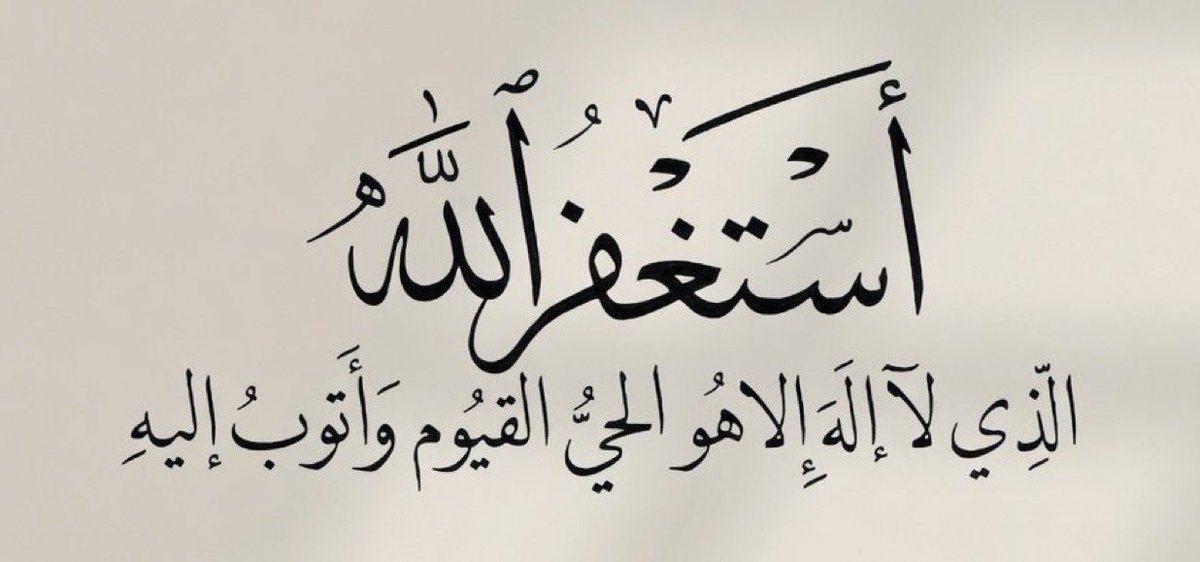 أَسْتَغْفِرُ ٱللَّهَ
الّذِي لآ إلَهَ إِلا هُو الحيُّ القيُوم وَأَتوبُ إليهِ